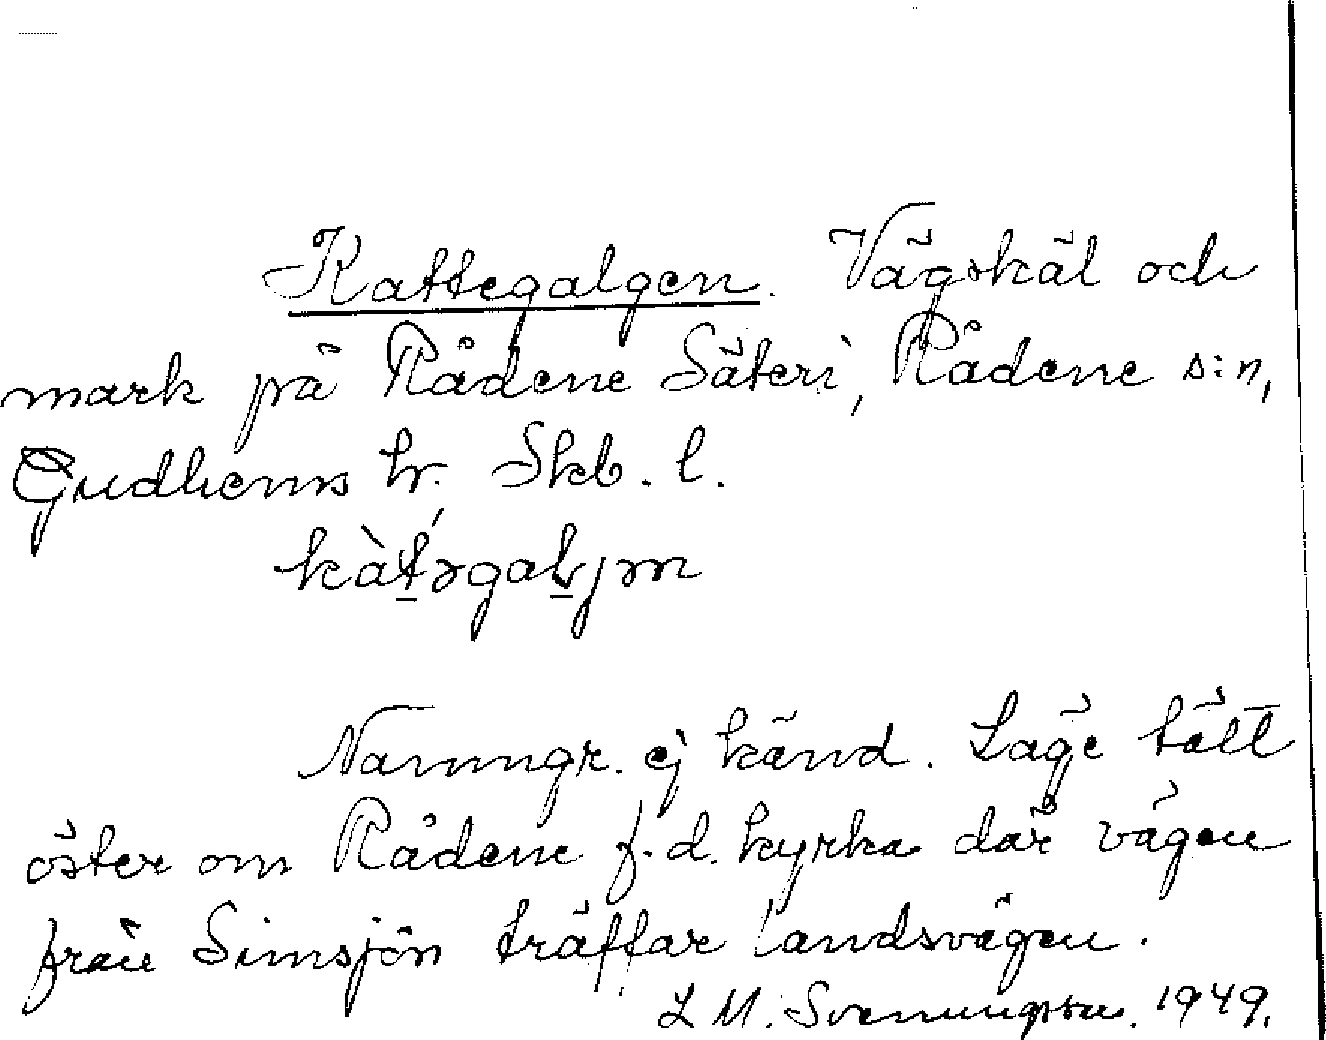 Kattegalgen. Vägskäl och
mark på Rådene Säteri, Rådene s:n,
Gudhems hr. Skb. l.
kàt́əgaḷjən
Namngr. ej känd. Läge tätt
öster om Rådene f.d. kyrka där vägen
från Simsjön träffar landsvägen.
L M. Svenungsson. 1949.